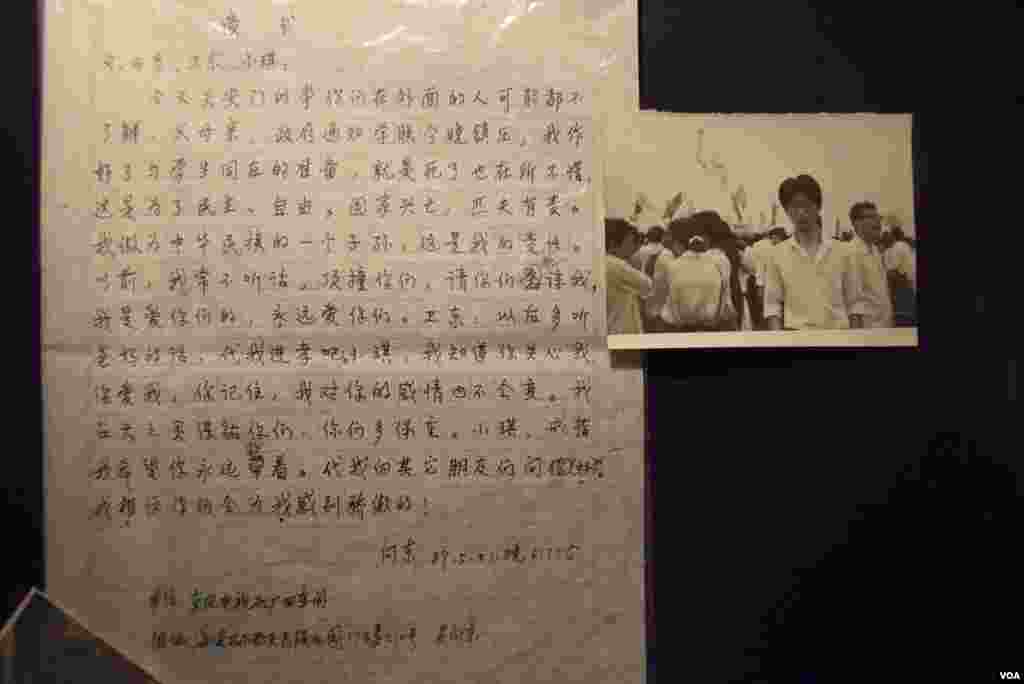 遗书
父、母亲、卫东、小琪:
今天天安门的事你们在外面的人可能都不
了解。父母亲,政府通知学联今晚镇压,我作
好了与学生同在的准备,就是死了也在所不惜,
这是为了民主、自由。国家兴亡,匹夫有责。
我做为中华民族的一个子孙,这是我的责任。
以前,我常不听话,顶撞你们,请你们原谅我,
我是爱你们的,永远爱你们。卫东:以后多听
爸妈的话,代我进孝吧。小琪,我知道你关心我
你爱我,你记住,我对你的感情也不会变。我
在天之灵保祐你们,你们多保重。小琪,戒指
我希望你永远带着。代我向其它朋友们问好
我相信你们会为我感到骄傲的!
向东 89.5.
单位:
地址:
VOA